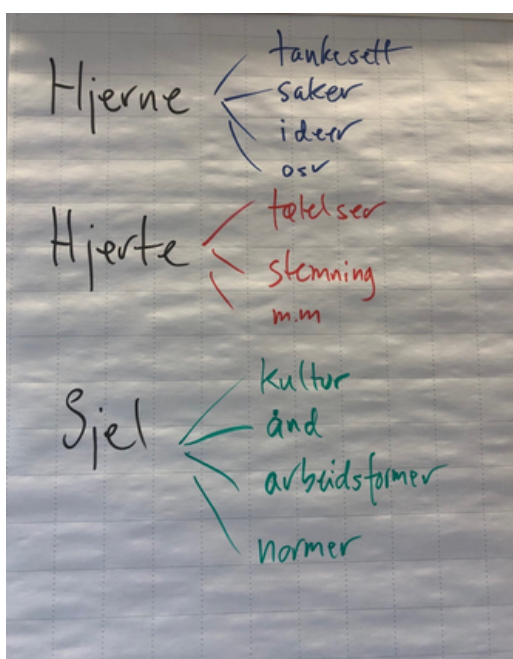 Hjerne
tankesett
saker
ideer
osv
Hjerte
følelser
stemning
m.m
Sjel
kultur
ånd
arbeidsformer
normer